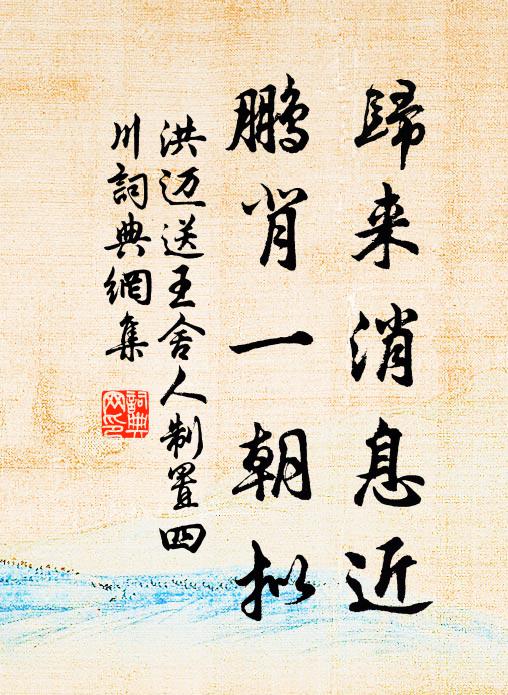 歸来消息近
鹏背一朝拟
洪迈送王舍人制置四
川詞典網集
詞典
网印